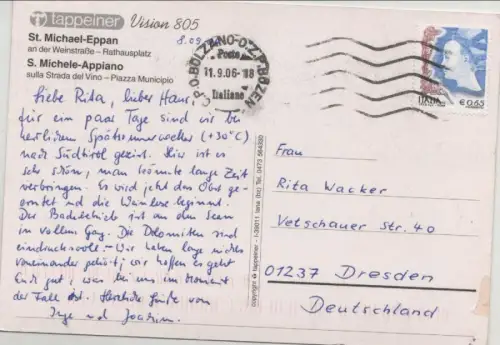 tappeiner Vision 805
St. Michael-Eppan
an der Weinstraße – Rathausplatz
S. Michele-Appiano
sulla Strada del Vino – Piazza Municipio
8.09.
Liebe Rita, lieber Hans,
für ein paar Tage sind wir bei
herrlichem Spätsommerwetter (+30°C)
nach Südtirol gereist. Hier ist es
sehr schön, man könnte lange Zeit
verbringen. Es wird jetzt das Obst ge-
erntet und die Weinlese beginnt.
Der Badebetrieb ist an den Seen
in vollem Gang. Die Dolomiten sind
eindrucksvoll. – Wir haben lange nichts
voneinander gehört; wir hoffen es geht
Euch gut, was bei uns im Moment
der Fall ist. Herzliche Grüße von
Inge und Joachim.
copyright © tappeiner - I-39011 lana (bz) Tel. 0473 564330
C.P.O. BOLZANO - D.Z.P. BOZEN
Poste
11.9.06-*18
Italiane
ITALIA
€ 0,65
Frau
Rita Wacker
Vetschauer Str. 40
01237 Dresden
Deutschland